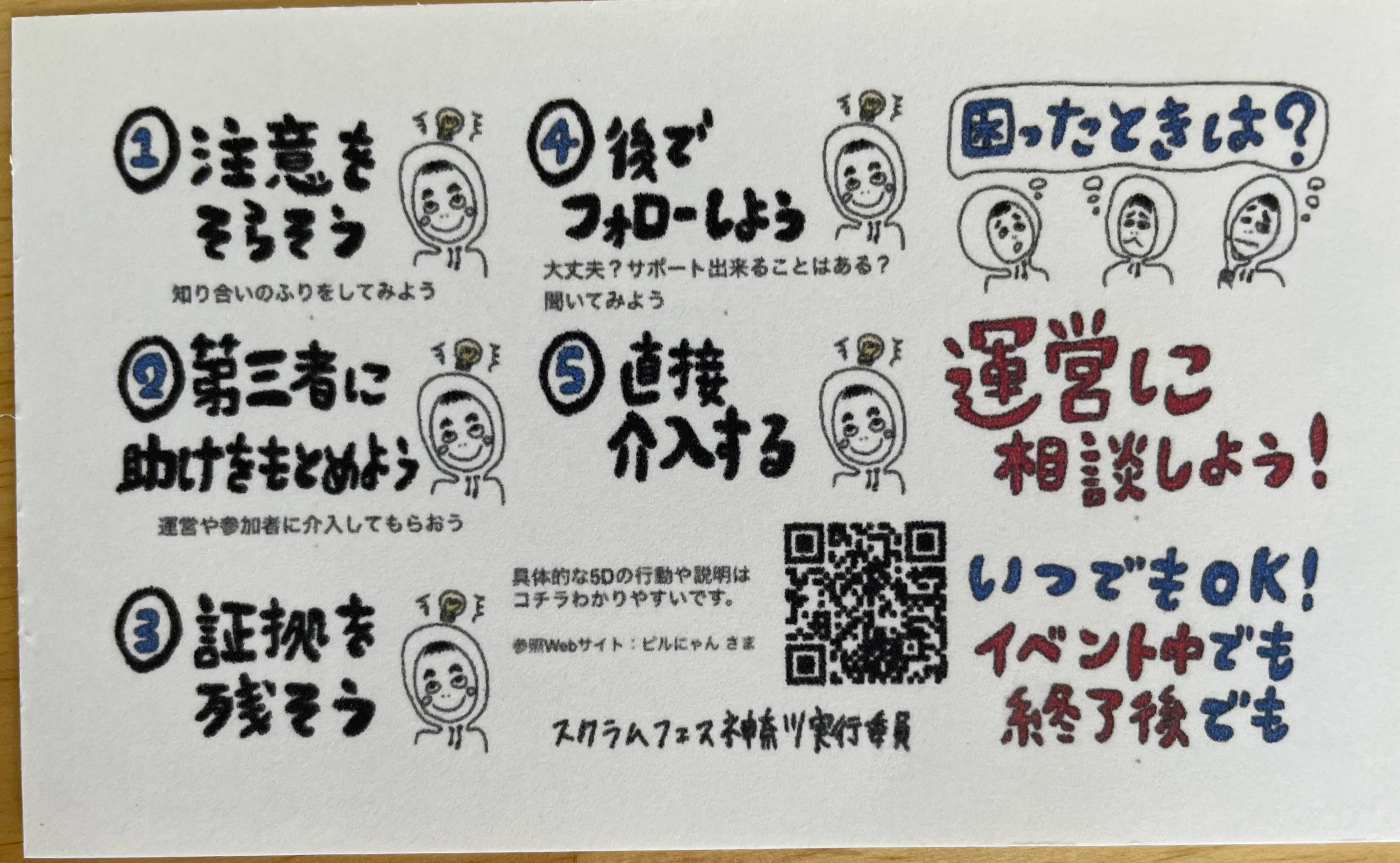 1 注意を
そらそう
知り合いのふりをしてみよう
2 第三者に
助けをもとめよう
運営や参加者に介入してもらおう
3 証拠を
残そう
4 後で
フォローしよう
大丈夫？サポート出来ることはある？
聞いてみよう
5 直接
介入する
具体的な5Dの行動や説明は
コチラわかりやすいです。
参照Webサイト：ピルにゃん さま
スクラムフェス神奈川実行委員
困ったときは？
運営に
相談しよう！
いつでもOK！
イベント中でも
終了後でも